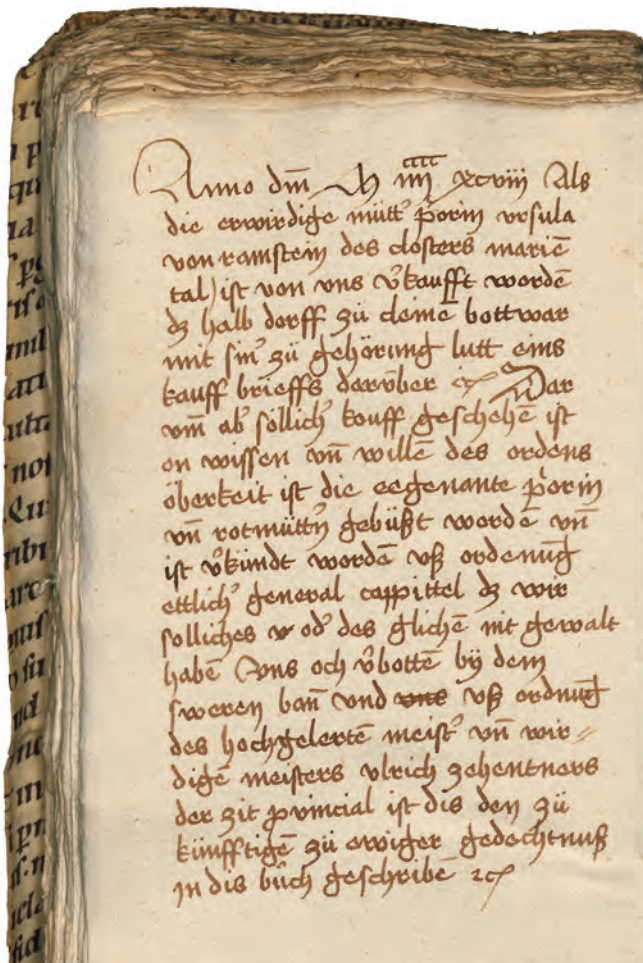 Anno dm̄ M iiii cccc xcviii Als
die erwirdige mütt' p̄orin vrsula
von ramstein des closters mariē
tal) ist von vns v̾kaufft wordē
dz halb dorff zü cleinē bottwar
mit sin' zü gehörung lutt eins
kauff brieffs derv̈ber ꝛc Dar
vm̄ ab' söllich' kouff geschehē ist
on wissen vn̄ willē des ordens
öberkeit ist die eegenante p̄orin
vn̄ rotmütt'n gebüßt wordē vn̄
ist v̾kündt wordē vß ordenūg
ettlich' general cappittel dz wir
solliches v od' des glichē nit gewalt
habē Vns och v̾bottē by dem
sweren bañ vnd vns vß ordnūg
des hochgelertē meist' vn̄ wir⸗
digē meisters vlrich zehentners
der zit p̱vincial ist dis den zü
künfftigē zü ewiger gedechtnuß
jn dis büch geschribē ꝛc